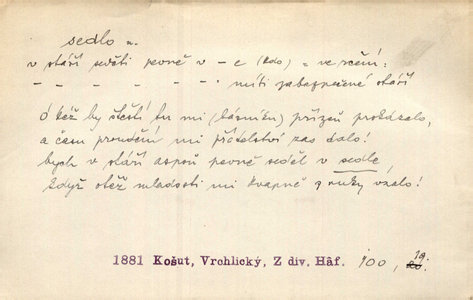 sedlo n.
v stáří seděti pevně v – e (kdo) = ve rčení:
– – – – – – · míti zabezpečené stáří
Ó kéž by štěstí tu mi (básníku) přízeň prokázalo,
a čas proudění mi přátelství zas dalo!
bych v stáří aspoň pevně seděl v sedle,
když otěž mladosti mi kvapně z ruky vzalo!
1881 Košut, Vrchlický, Z div. Háf. 100, 19.